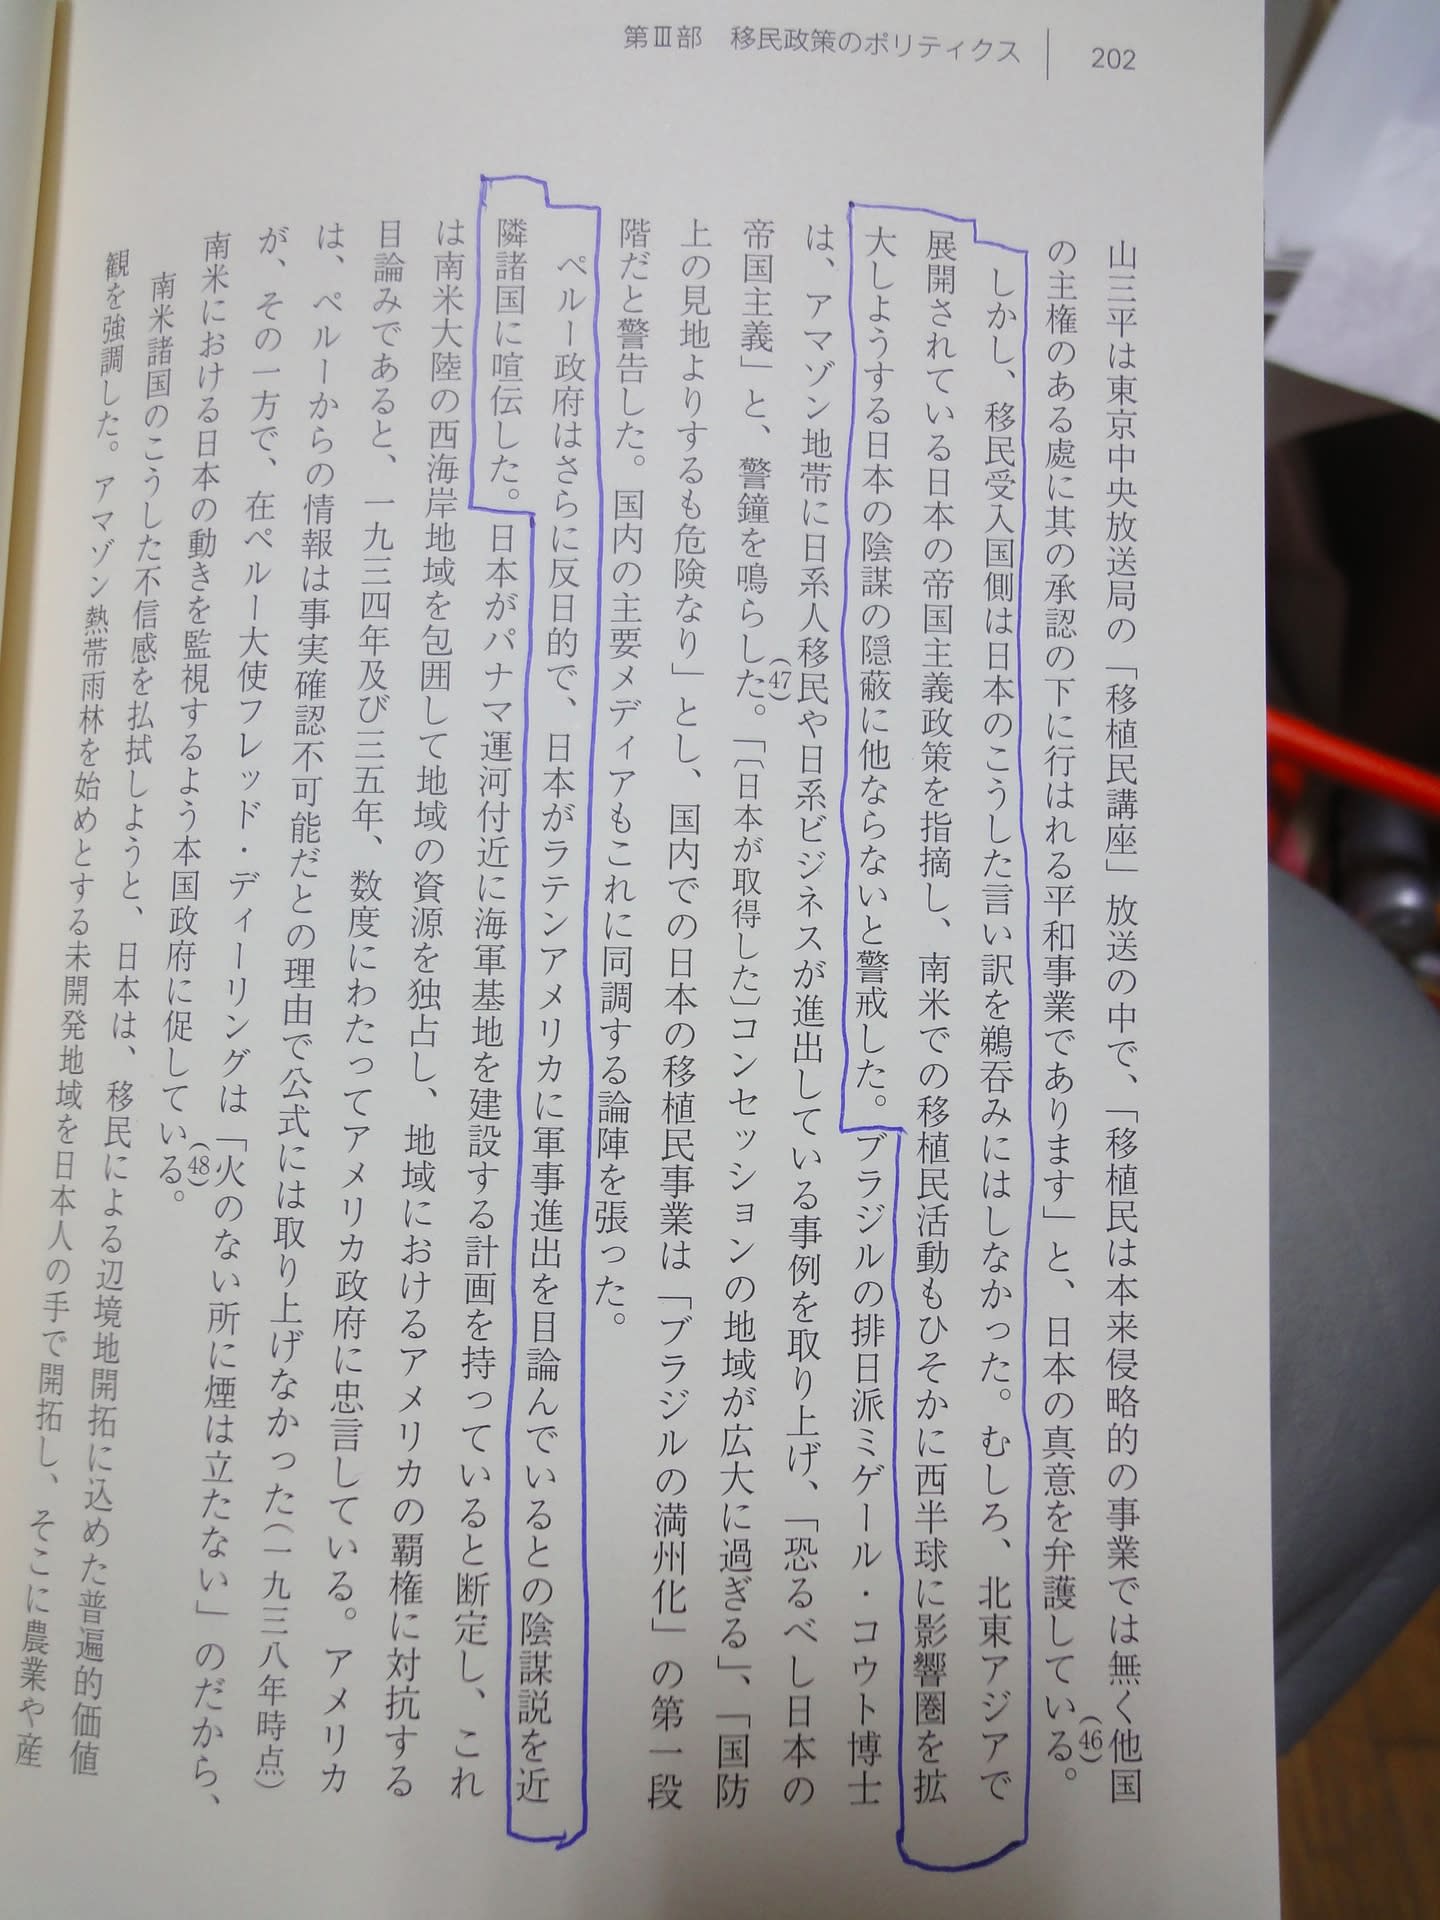 第Ⅲ部 移民政策のポリティクス
202
山三平は東京中央放送局の「移植民講座」放送の中で、「移植民は本来侵略的の事業では無く他国
の主権のある處に其の承認の下に行はれる平和事業であります」と、日本の真意を弁護している。(46)
しかし、移民受入国側は日本のこうした言い訳を鵜呑みにはしなかった。むしろ、北東アジアで
展開されている日本の帝国主義政策を指摘し、南米での移植民活動もひそかに西半球に影響圏を拡
大しようする日本の陰謀の隠蔽に他ならないと警戒した。ブラジルの排日派ミゲール・コウト博士
は、アマゾン地帯に日系人移民や日系ビジネスが進出している事例を取り上げ、「恐るべし日本の
帝国主義」と、警鐘を鳴らした。(47)「〔日本が取得した〕コンセッションの地域が広大に過ぎる」、「国防
上の見地よりするも危険なり」とし、国内での日本の移植民事業は「ブラジルの満州化」の第一段
階だと警告した。国内の主要メディアもこれに同調する論陣を張った。
ペルー政府はさらに反日的で、日本がラテンアメリカに軍事進出を目論んでいるとの陰謀説を近
隣諸国に喧伝した。日本がパナマ運河付近に海軍基地を建設する計画を持っていると断定し、これ
は南米大陸の西海岸地域を包囲して地域の資源を独占し、地域におけるアメリカの覇権に対抗する
目論みであると、一九三四年及び三五年、数度にわたってアメリカ政府に忠言している。アメリカ
は、ペルーからの情報は事実確認不可能だとの理由で公式には取り上げなかった(一九三八年時点)
が、その一方で、在ペルー大使フレッド・ディーリングは「火のない所に煙は立たない」のだから、
南米における日本の動きを監視するよう本国政府に促している。(48)
南米諸国のこうした不信感を払拭しようと、日本は、移民による辺境地開拓に込めた普遍的価値
観を強調した。アマゾン熱帯雨林を始めとする未開発地域を日本人の手で開拓し、そこに農業や産